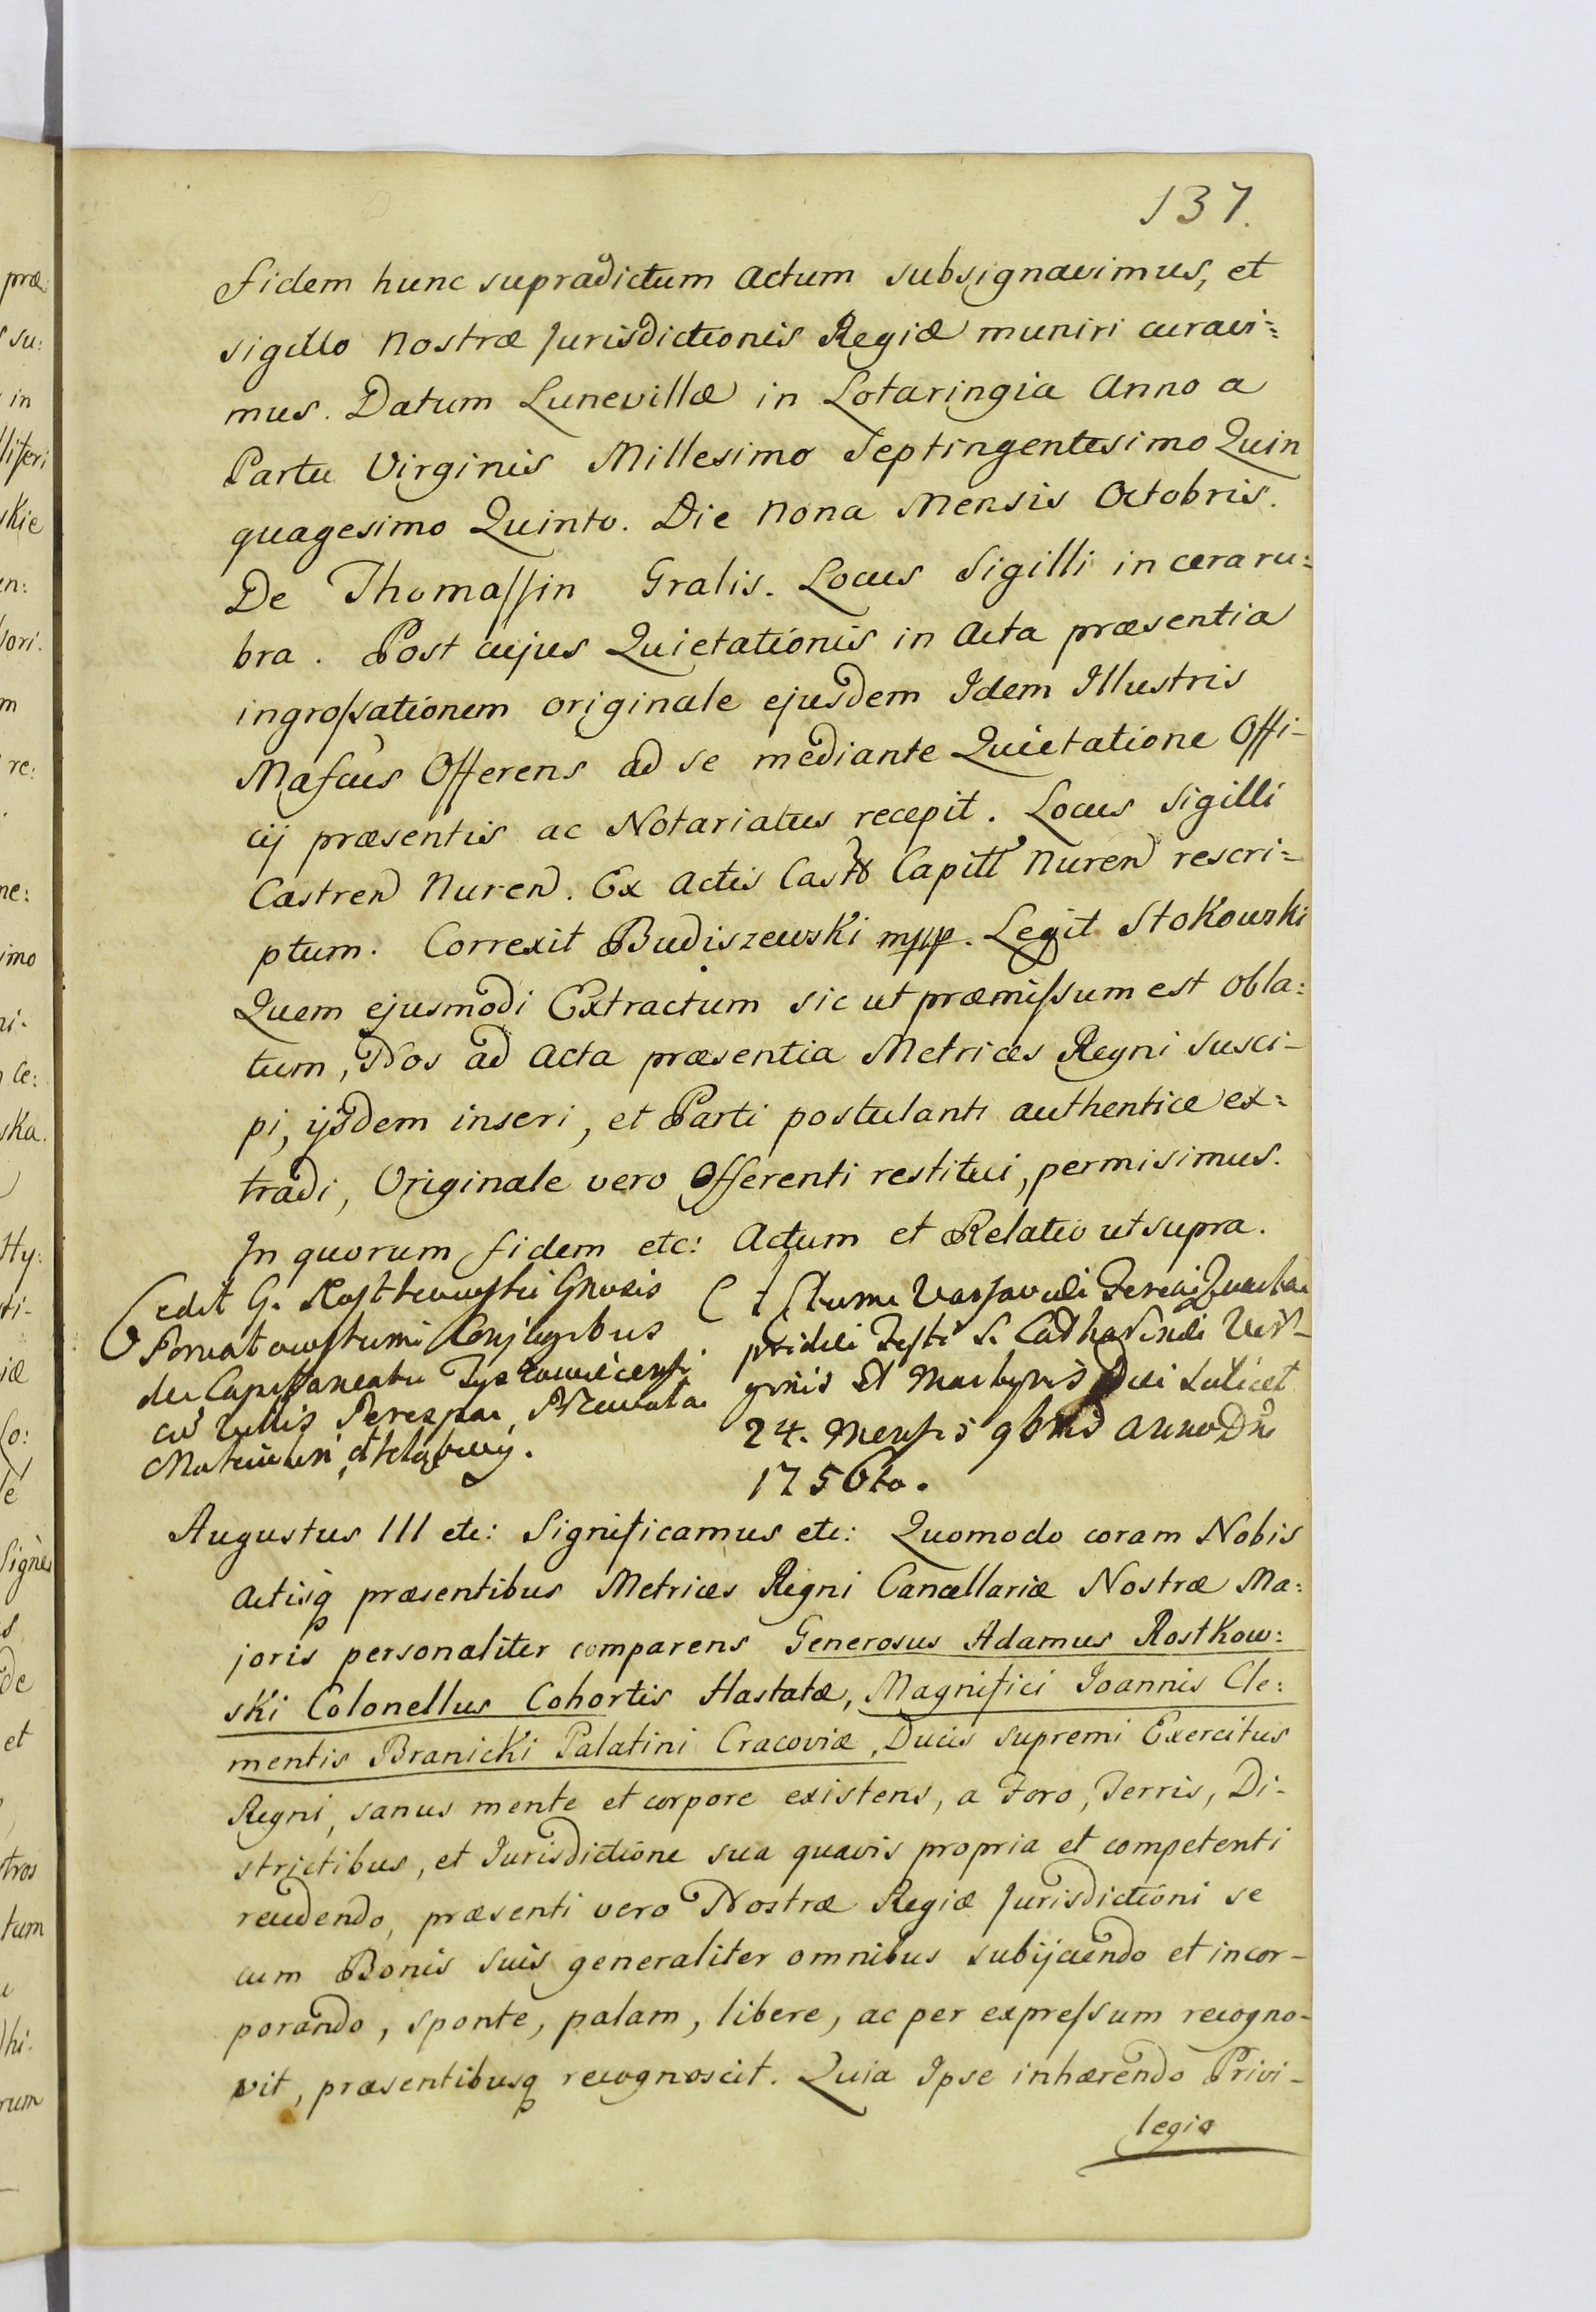 137.
fidem hunc supradictum Actum subsignavimus, et
sigillo Nostræ Jurisdictionis Regiæ muniri curavi=
mus. Datum Lunevillæ in Lotaringia Anno a
Partu Virginis Millesimo Septingentesimo Quin
quagesimo Quinto. Die Nona Mensis Octobris.
De Thomassin Gralis. Locus Sigilli in cera ru=
bra. Post cujus Quietationis in Acta præsentia
ingrossationem originale ejusdem Idem Illustris
Mascus Offerens ad se mediante Quietatione Offi-
cij præsentis ac Notariatus recepit. Locus Sigilli
Castren Nuren. Ex Actis Castr Capitl Nuren rescri=
ptum. Correxit Budiszewski mpp. Legit Stokowski
Quem ejusmodi Extractum sic ut præmissum est obla:
tum, Nos ad Acta præsentia Metrices Regni susci-
pi, ijsdem inseri, et Parti postulanti authentice ex=
tradi, Originale vero Offerenti restitui, permisimus.
In quorum fidem etc: Actum et Relatio ut supra.
Cedit G. Rostkowski Gnosis
Conjugibus
de Capitaneatu
cu Villis
Actum Varsaviæ Feria Quarta
pridie Festi S. Catharinæ Vir-
ginis Et Martyris Die scilicet
24. Mensis 9bris Anno Dni
1756to.
Augustus III etc: Significamus etc: Quomodo coram Nobis
Actisq præsentibus Metrices Regni Cancellariæ Nostræ Ma:
joris personaliter comparens Generosus Adamus Rostkow:
ski Colonellus Cohortis Hastatæ, Magnifici Ioannis Cle:
mentis Branicki Palatini Cracoviæ, Ducis supremi Exercitus
Regni, sanus mente et corpore existens, a Foro, Terris, Di-
strictibus, et Iurisdictione sua quavis propria et competenti
recedendo, præsenti vero Nostræ Regiæ Jurisdictioni se
cum Bonis suis generaliter omnibus subijciendo et incor-
porando, sponte, palam, libere, ac per expressum recogno-
vit, præsentibusq recognoscit. Quia Ipse inhærendo Privi-
legio